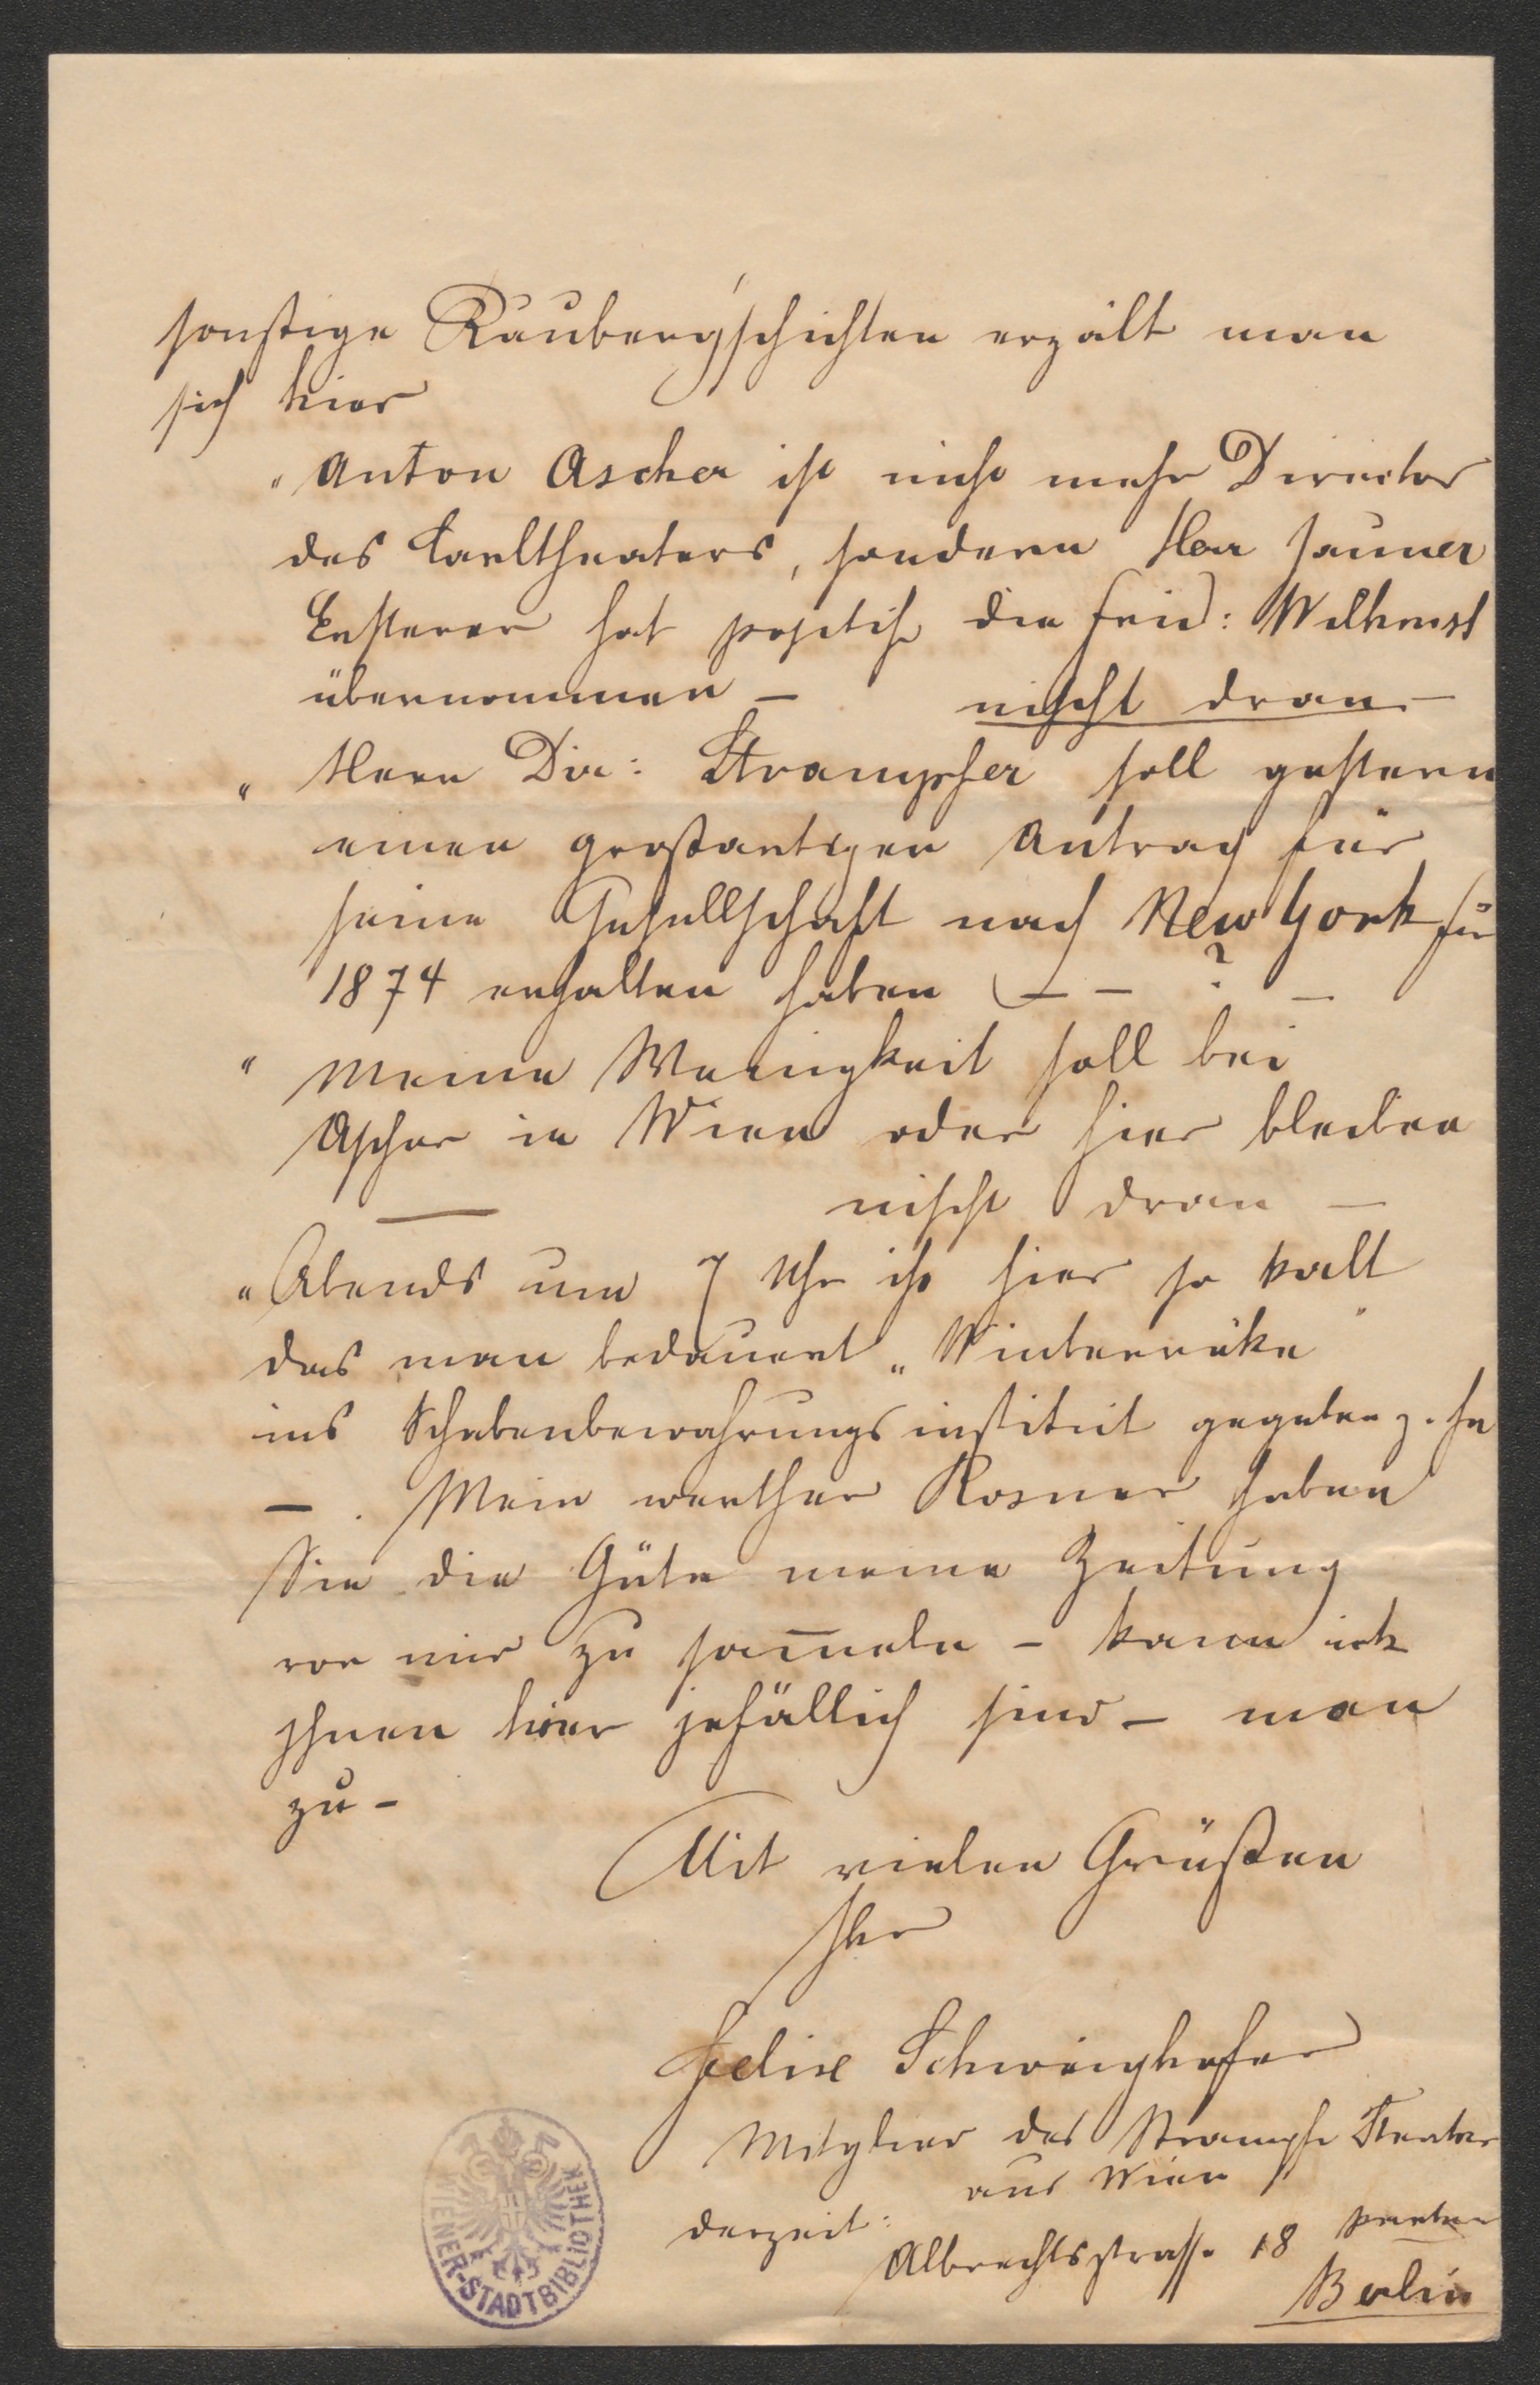 sonstige Räuberg'schichten erzält man
sich hier
" Anton Ascher ist nicht mehr Director
des Carltheaters, sondern Herr Jauner
Ersterer hat positiv die Fried: Wilhmst
übernommen – nischt dran –
" Herr Dir: Strampfer soll gestern
einen großartigen Antrag für
seine Gesellschaft nach New York für
1874 erhalten haben – – ? –
" Meine Wenigkeit soll bei
Ascher in Wien oder hier bleiben
— nischt dran —
" Abends um 7 Uhr ist hier so kalt
das man bedauert „Winterröke"
ins Schabenbewahrungsinstitut gegeben z. ha
–. Mein werther Rosner haben
Sie die Güte meine Zeitung
vor mir zu sam̄eln – kann ick
Ihnen hier jefällich sind – man
zu –
Mit vielen Grüßen
Ihr
Felix Schweighofer
Mitglied des Strampfer Theaters
aus Wien
derzeit:
Albrechtsstrasse 18 parterre
Berlin
WIENER-STADTBIBLIOTHEK